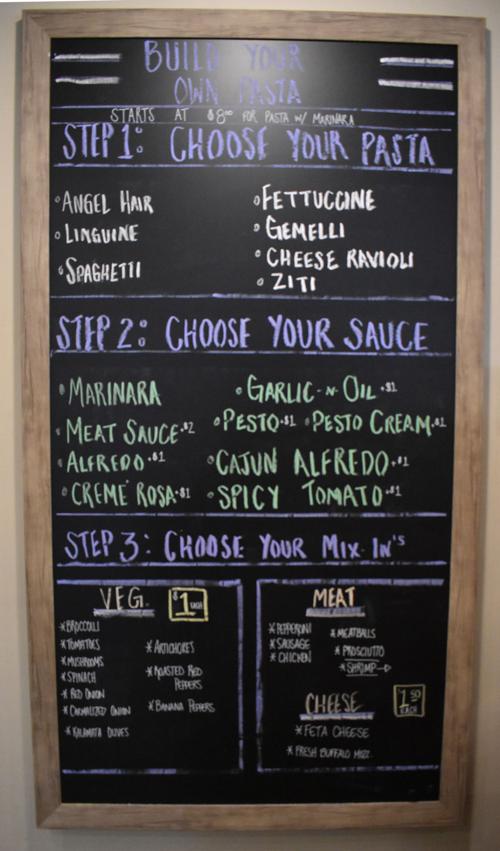 BUILD YOUR
OWN PASTA
STARTS AT $8.00 FOR PASTA W/ MARINARA
STEP 1: CHOOSE YOUR PASTA
ANGEL HAIR
LINGUINE
SPAGHETTI
FETTUCCINE
GEMELLI
CHEESE RAVIOLI
ZITI
STEP 2: CHOOSE YOUR SAUCE
MARINARA
GARLIC-N-OIL +$1
MEAT SAUCE +$2
PESTO +$1 PESTO CREAM +$1
ALFREDO +$1
CAJUN ALFREDO +$1
CREME ROSA +$1
SPICY TOMATO +$1
STEP 3: CHOOSE YOUR MIX-IN'S
VEG. $1 EACH
*BROCCOLI
*TOMATOES
*MUSHROOMS
*SPINACH
*RED ONION
*CARMALIZED ONION
*KALAMATA OLIVES
*ARTICHOKES
*ROASTED RED
PEPPERS
*BANANA PEPPERS
MEAT
*PEPPERONI
*SAUSAGE
*CHICKEN
*MEATBALLS
*PROSCIUTTO
*SHRIMP→
1.50 EACH
CHEESE
*FETA CHEESE
*FRESH BUFFALO MOZZ.